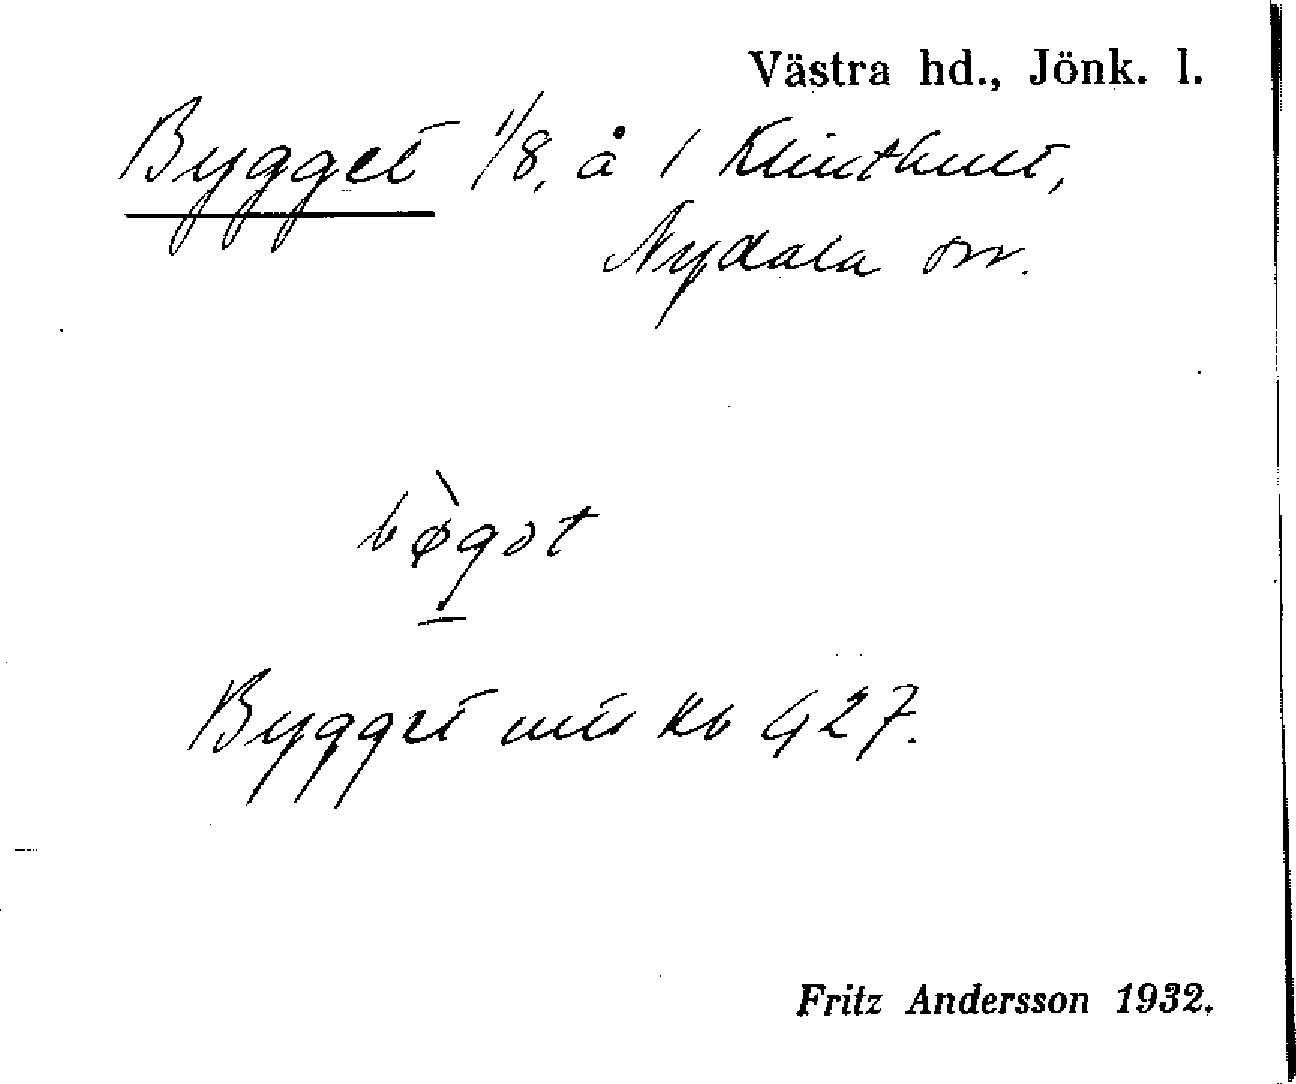 Västra hd., Jönk. l.
Bygget 1/8, å 1 Klinthult,
Nydala sn.
bø̀gǝt
Bygget Kb 427.
Fritz Andersson 1932.